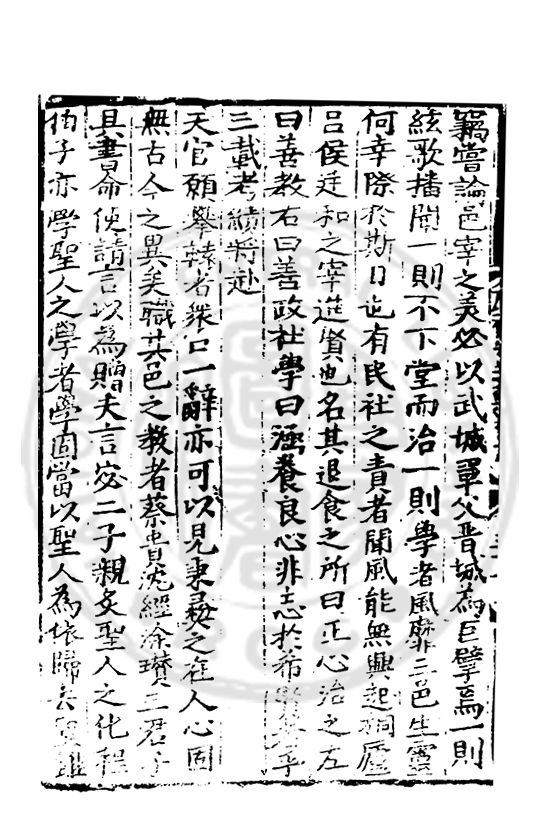 竊嘗論邑宰之美必以武城單父晉城為巨擘焉一則
絃歌播聞一則不下堂而治一則學者風靡三邑生靈
何幸際於斯日也有民社之責者聞風能無興起桐廬
呂侯廷和之宰進賢也名其退食之所曰正心治之左
曰善教右曰善政社學曰涵養良心非志於希聖
三載考績將赴
天官願舉轅者衆口一辭亦可以見秉彝之在人心固
無古今之異矣職其邑之教者蔡貴沈經涂瓚三君子
具書命使請言以為贈夫言宓二子親炙聖人之化程
伯子亦學聖人之學者學固當以聖人為依歸